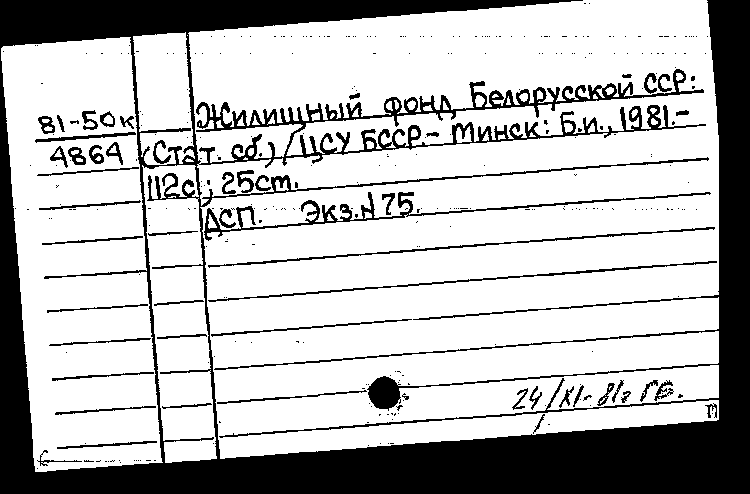 81-50к Жилищный фонд Белорусской ССР:
4864 (Стат. сб.) / ЦСУ БССР.- Минск: Б.и., 1981.-
112с.; 25см.
ДСП. Экз.N75.
24/XI-81г